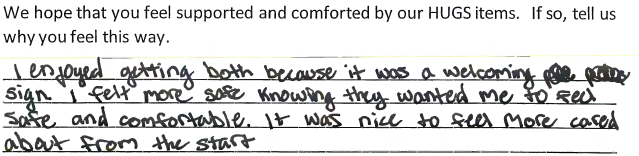 We hope that you feel supported and comforted by our HUGS items. If so, tell us
why you feel this way.
I enjoyed getting both because it was a welcoming
sign. I felt more safe knowing they wanted me to feel
safe and comfortable. It was nice to feel more cared
about from the start